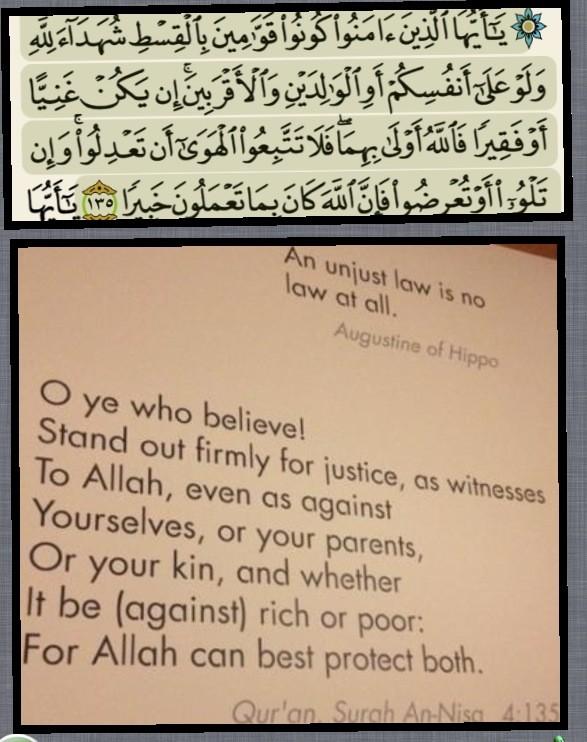 يَٰٓأَيُّهَا ٱلَّذِينَ ءَامَنُوا۟ كُونُوا۟ قَوَّٰمِينَ بِٱلْقِسْطِ شُهَدَآءَ لِلَّهِ
وَلَوْ عَلَىٰٓ أَنفُسِكُمْ أَوِ ٱلْوَٰلِدَيْنِ وَٱلْأَقْرَبِينَ ۚ إِن يَكُنْ غَنِيًّا
أَوْ فَقِيرًا فَٱللَّهُ أَوْلَىٰ بِهِمَا ۖ فَلَا تَتَّبِعُوا۟ ٱلْهَوَىٰٓ أَن تَعْدِلُوا۟ ۚ وَإِن
تَلْوُۥٓا۟ أَوْ تُعْرِضُوا۟ فَإِنَّ ٱللَّهَ كَانَ بِمَا تَعْمَلُونَ خَبِيرًا ١٣٥ يَٰٓأَيُّهَا
An unjust law is no
law at all.
Augustine of Hippo
O ye who believe!
Stand out firmly for justice, as witnesses
To Allah, even as against
Yourselves, or your parents,
Or your kin, and whether
It be (against) rich or poor:
For Allah can best protect both.
Qur'an, Surah An-Nisa 4:135